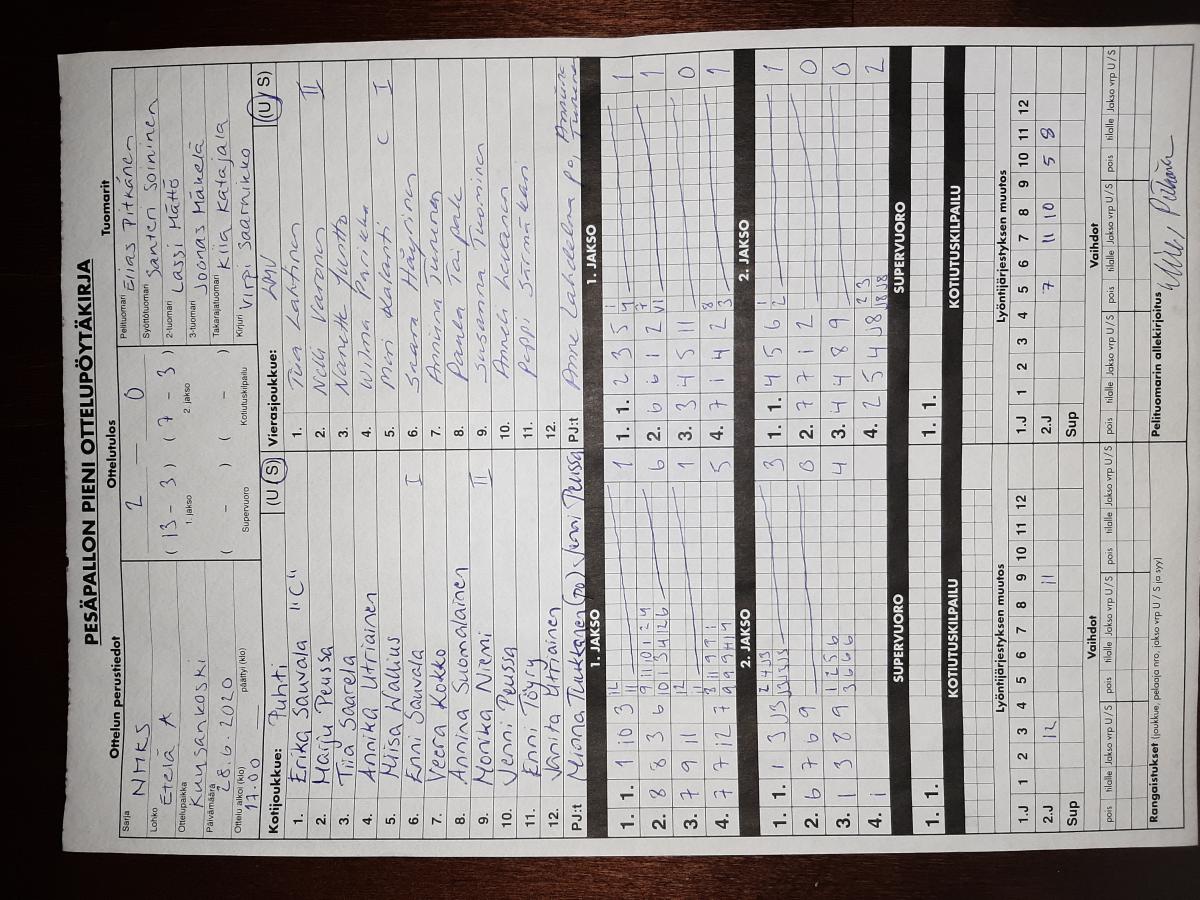 PESÄPALLON PIENI OTTELUPÖYTÄKIRJA
Ottelun perustiedot
Sarja NMKS
Lohko Etelä A
Ottelupaikka Kuusankoski
Päivämäärä 28.6.2020
Ottelu alkoi (klo) 17.00 päättyi (klo)
Ottelutulos
2 — 0
( 13 - 3 ) ( 7 - 3 )
1. jakso 2. jakso
( - ) ( - )
Supervuoro Kotiutuskilpailu
Tuomarit
Pelituomari Elias Pitkänen
Syöttötuomari Santeri Soininen
2-tuomari Lassi Mättö
3-tuomari Joonas Mäkelä
Takarajatuomari Kiia Katajala
Kirjuri Virpi Saarnikko
Kotijoukkue: Puhti (U / S)
1. Erika Sauvala "C"
2. Maiju Peussa
3. Tiia Saarela
4. Annika Utriainen
5. Miisa Wallius
6. Enni Sauvala I
7. Veera Kokko
8. Annina Suomalainen
9. Monika Niemi II
10. Jenni Peussa
11. Enni Töyry
12. Janita Utriainen
PJ:t Minna Tuukkanen (po) Jenni Peussa
Vierasjoukkue: LMV (U / S)
1. Tiia Lahtinen
2. Nelli Varonen II
3. Nanette Yuntto
4. Wilma Parikka
5. Mini Kalanti C I
6. Saara Häyrinen
7. Anniina Turunen
8. Paula Taipale
9. Susanna Tuominen
10. Anneli Levanen
11. Peppi Särmäkari
12.
PJ:t Anne Lahdelma po, Anniina Turunen
1. JAKSO
1. 1. 1 10 3 1
2. 8 8 3 6 6
3. 7 9 11 1
4. 7 7 12 7 5
2. JAKSO
1. 1. 1 3 J3 3
2. 6 7 6 9 0
3. 1 3 8 9 4
4. 1
SUPERVUORO
1. 1.
KOTIUTUSKILPAILU
1. JAKSO
1. 1. 2 3 5 1
2. 6 6 1 2 1
3. 3 4 5 11 0
4. 7 1 4 2 1
2. JAKSO
1. 1. 4 5 6 1
2. 7 7 1 2 0
3. 4 4 8 9 0
4. 2 5 4 J8 2
SUPERVUORO
1. 1.
KOTIUTUSKILPAILU
Lyöntijärjestyksen muutos
1.J 1 2 3 4 5 6 7 8 9 10 11 12
2.J 12 11
Sup
Vaihdot
pois tilalle Jakso vrp U / S pois tilalle Jakso vrp U / S pois tilalle Jakso vrp U / S
Rangaistukset (joukkue, pelaaja nro, jakso vrp U / S ja syy)
Lyöntijärjestyksen muutos
1.J 1 2 3 4 5 6 7 8 9 10 11 12
2.J 7 11 10 5 8
Sup
Vaihdot
pois tilalle Jakso vrp U / S pois tilalle Jakso vrp U / S pois tilalle Jakso vrp U / S
Pelituomarin allekirjoitus